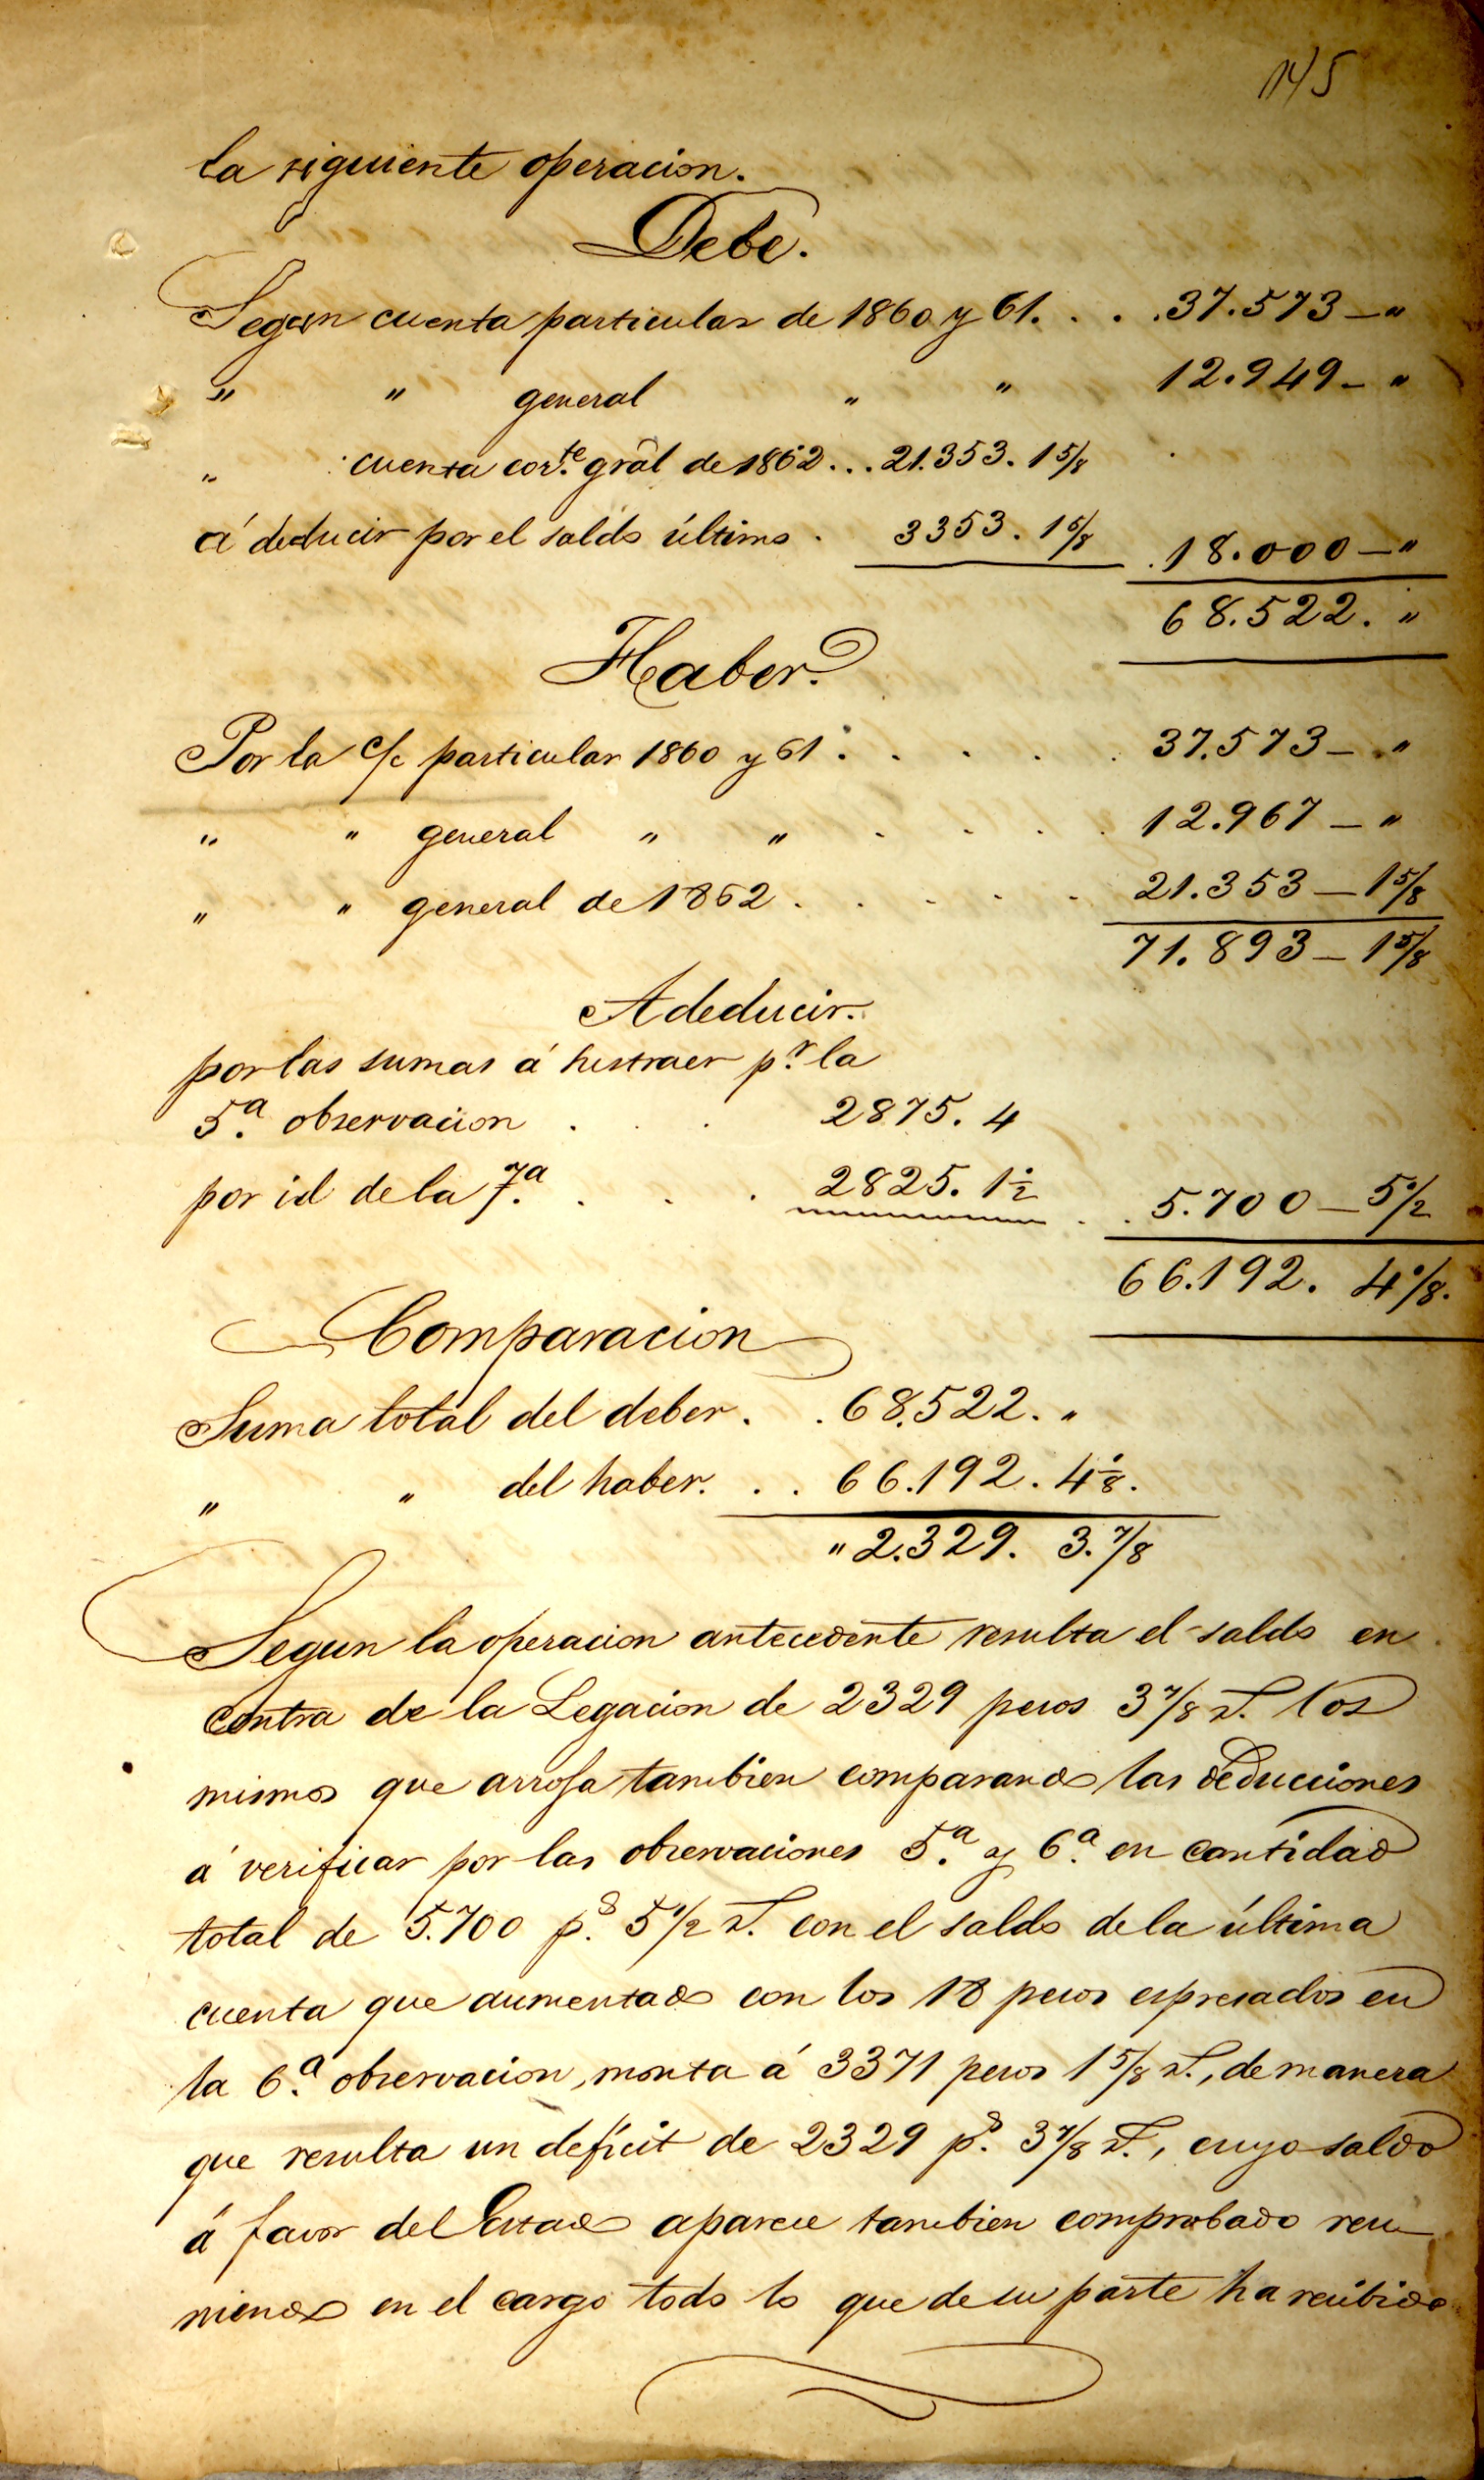 145
la siguiente operacion.
Debe.
Segun cuenta particular de 1860 y 61. . . . 37.573 — "
" " general " " 12.949 — "
" cuenta cor.te grâl de 1862... 21.353. 1 5/8
á deducir por el saldo último . 3353. 1 5/8 . 18.000 — "
68.522. "
Haber.
Por la c/c particular 1860 y 61 . . . . . 37.573 — "
" " general " " . . . . 12.967 — "
" " general de 1862 . . . . . 21.353 — 1 5/8
71.893 — 1 5/8
A deducir.
por las sumas á sustraer p.r la
5.a observacion . . . 2875. 4
por id de la 7.a . . . 2825. 1 1/2 . . 5.700 — 5 1/2
66.192. 4 1/8.
Comparacion
Suma total del deber. . 68.522. "
" " del haber. . . 66.192. 4 1/8.
" 2.329. 3. 7/8
Segun la operacion antecedente resulta el saldo en
contra de la Legacion de 2329 pesos 3 7/8 r.s los
mismos que arroja tambien comparando las deducciones
á verificar por las observaciones 5.a y 6.a en cantidad
total de 5.700 p.s 5 1/2 r.s con el saldo de la última
cuenta que aumentado con los 18 pesos espresados en
la 6.a observacion, monta á 3371 pesos 1 5/8 r.s, de manera
que resulta un defícit de 2329 p.s 3 7/8 r.s, cuyo saldo
á favor del Estado aparece tambien comprobado reu-
niendo en el cargo todo lo que de su parte ha recibido